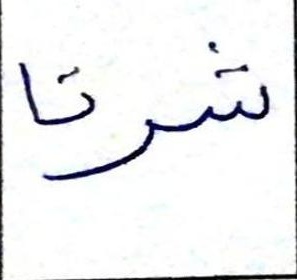 شرتا